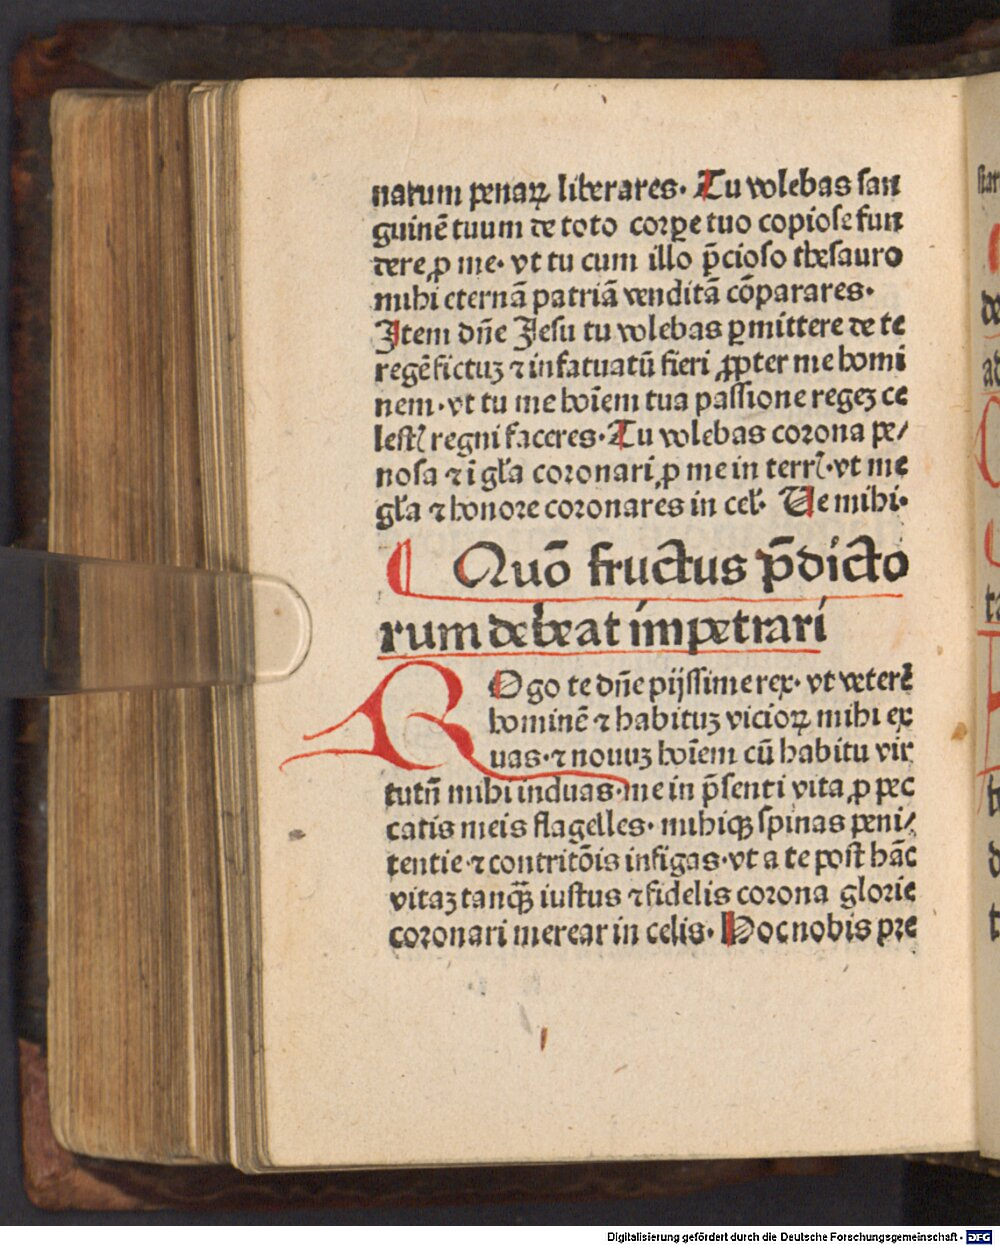 natum penaꝝ liberares. Tu volebas san
guinē tuum de toto corꝑe tuo copiose fun
dere ꝓ me. vt tu cum illo p̄cioso thesauro
mihi eternā patriā venditā cōparares.
Item dn̄e Jesu tu volebas ꝑmittere de te
regē fictuꝫ ⁊ infatuatū fieri ꝓpter me homi
nem. vt tu me hoīem tua passione regeꝫ ce
lestꝭ regni faceres. Tu volebas corona pe/
nosa ⁊ ī gl̄a coronari ꝓ me in terrꝭ. vt me
gl̄a ⁊ honore coronares in cel̄. Ve mihi.
Quō fructus p̄dicto
rum debeat impetrari
ROgo te dn̄e pijssime rex. vt veterē
hominē ⁊ habituꝫ vicioꝝ mihi ex
uas. ⁊ nouuꝫ hoīem cū habitu vir
tutū mihi induas. me in p̄senti vita ꝓ pec
catis meis flagelles. mihiqꝫ spinas peni/
tentie ⁊ contritōis infigas. vt a te post hāc
vitaꝫ tanqꝫ̄ iustus ⁊ fidelis corona glorie
coronari merear in celis. Hoc nobis pre
Digitalisierung gefördert durch die Deutsche Forschungsgemeinschaft - DFG